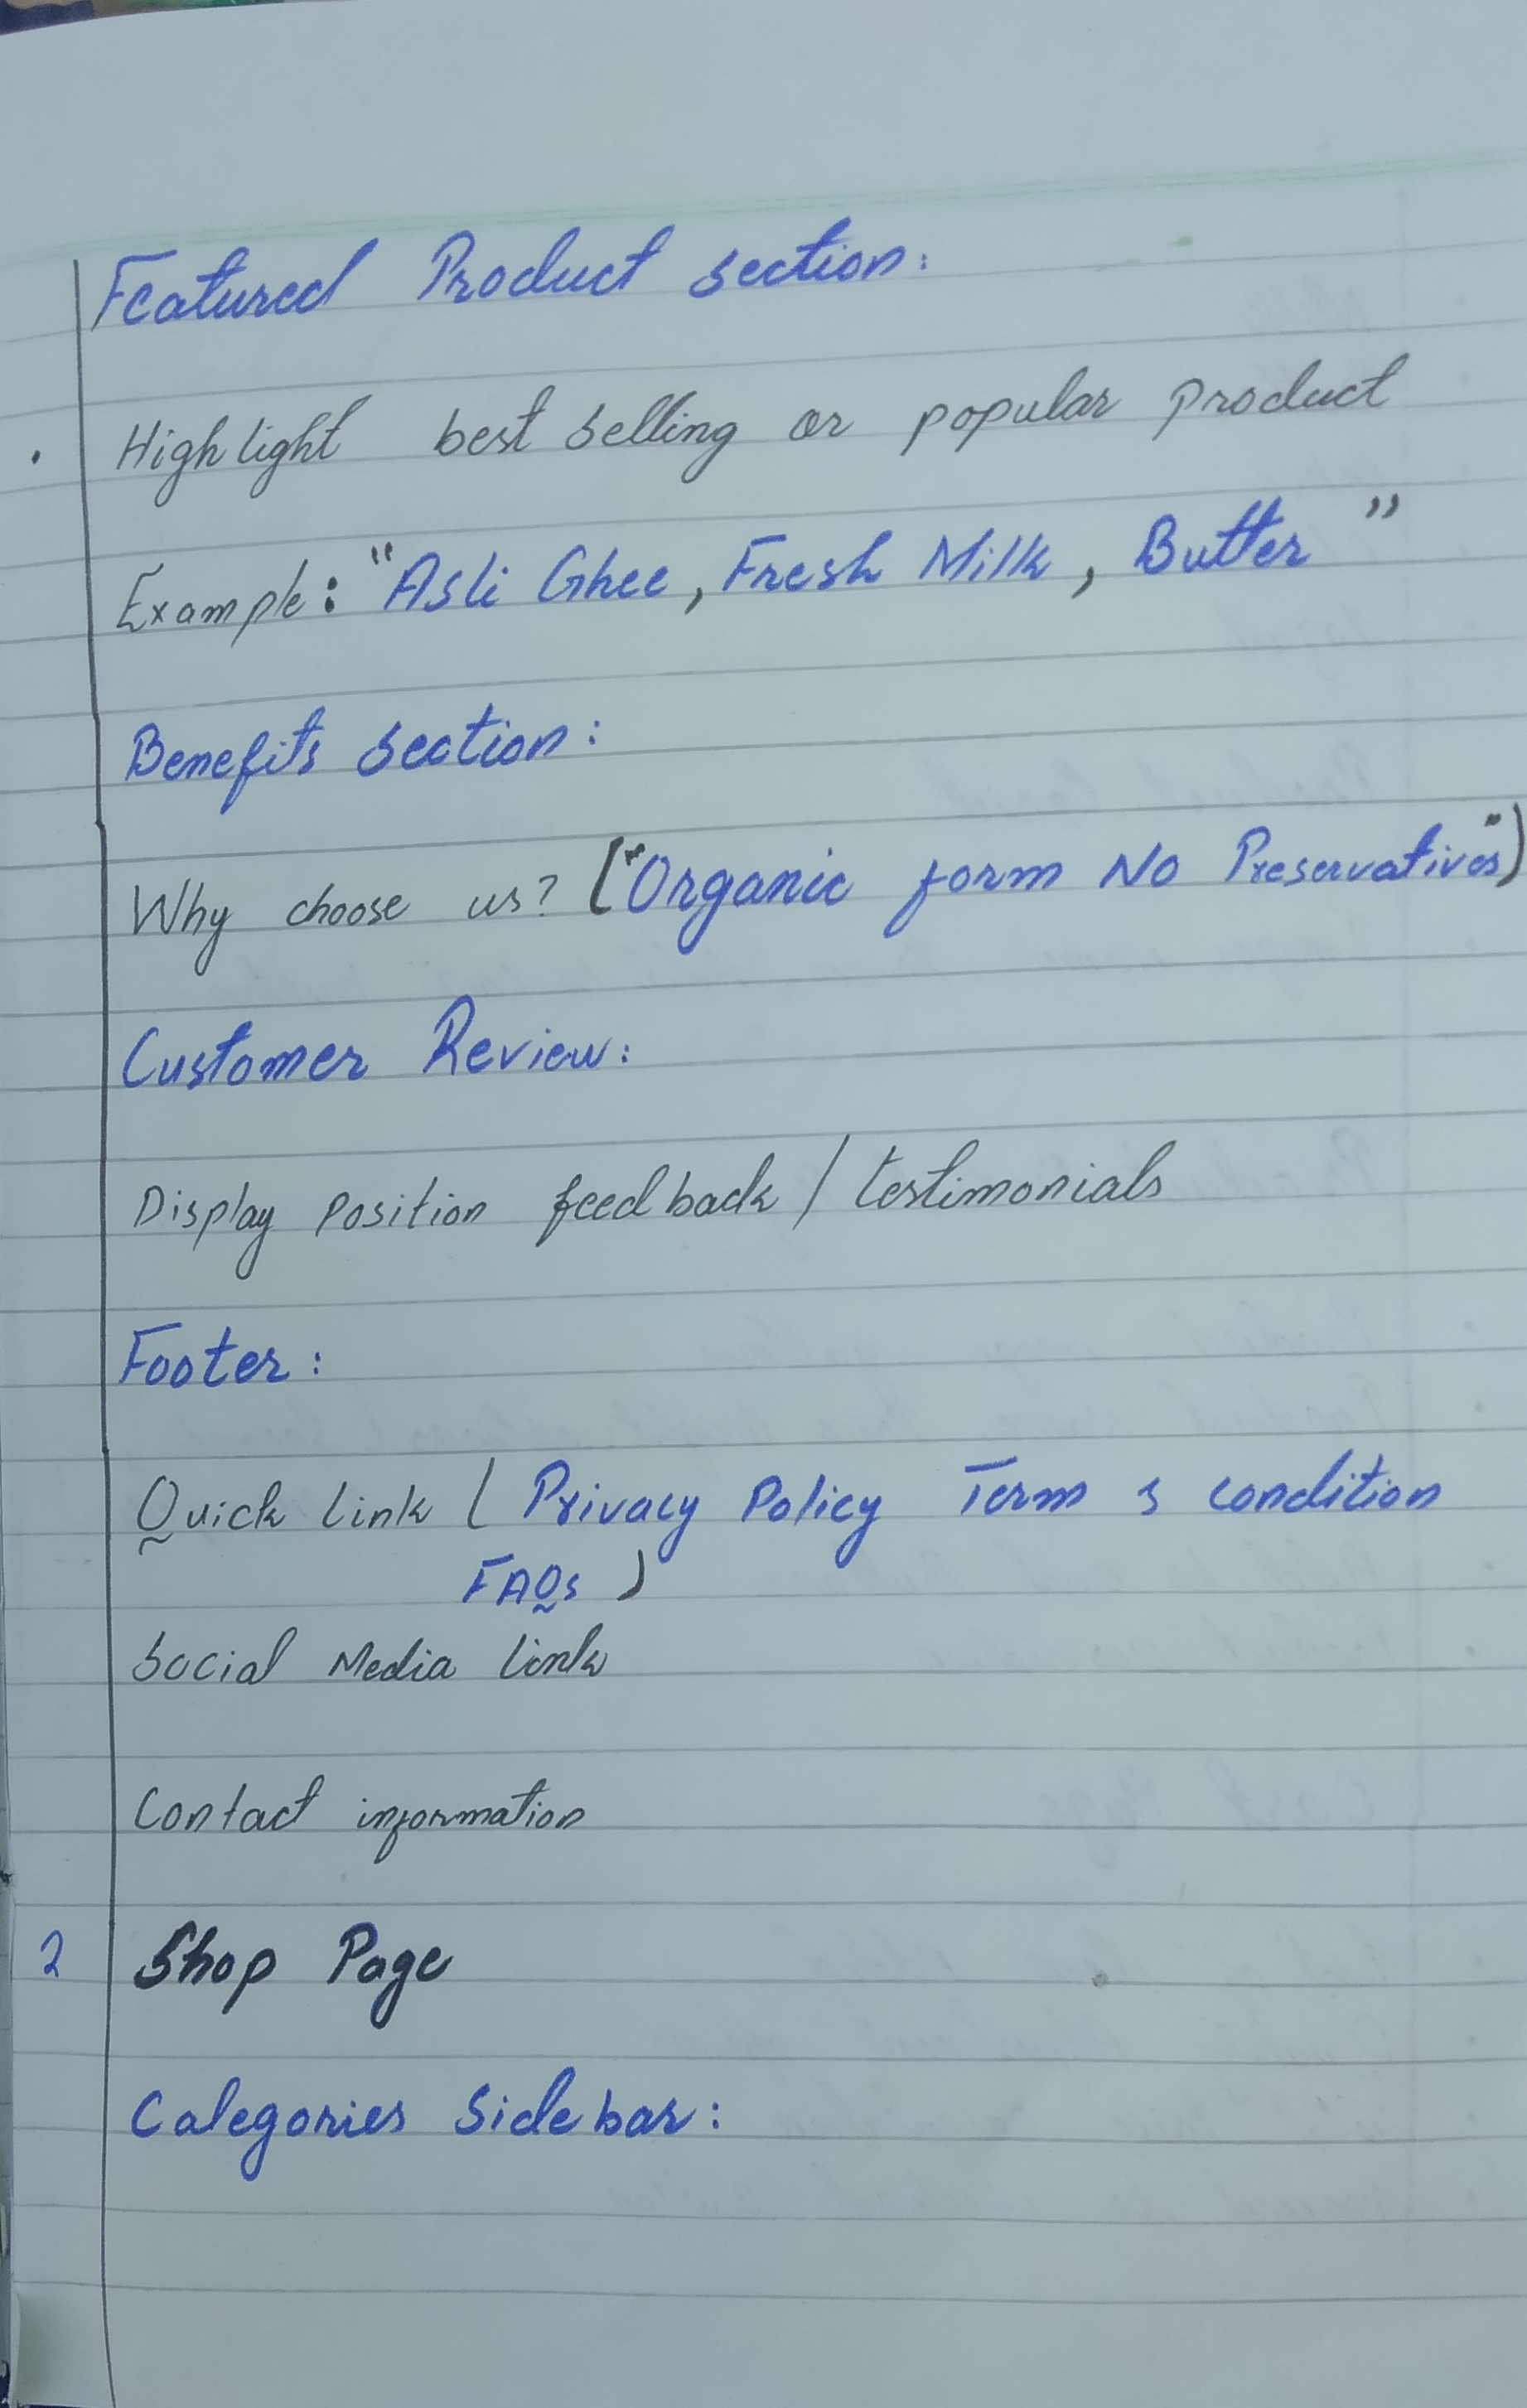 Featured Product section:
. Highlight best selling or popular product
Example: "Asli Ghee, Fresh Milk, Butter"
Benefits section:
Why choose us? ("Organic form No Preservatives")
Customer Review:
Display Position feedback / testimonials
Footer:
Quick Link ( Privacy Policy Term & condition
FAQs )
Social Media Link
Contact information
2 Shop Page
Categories Sidebar: